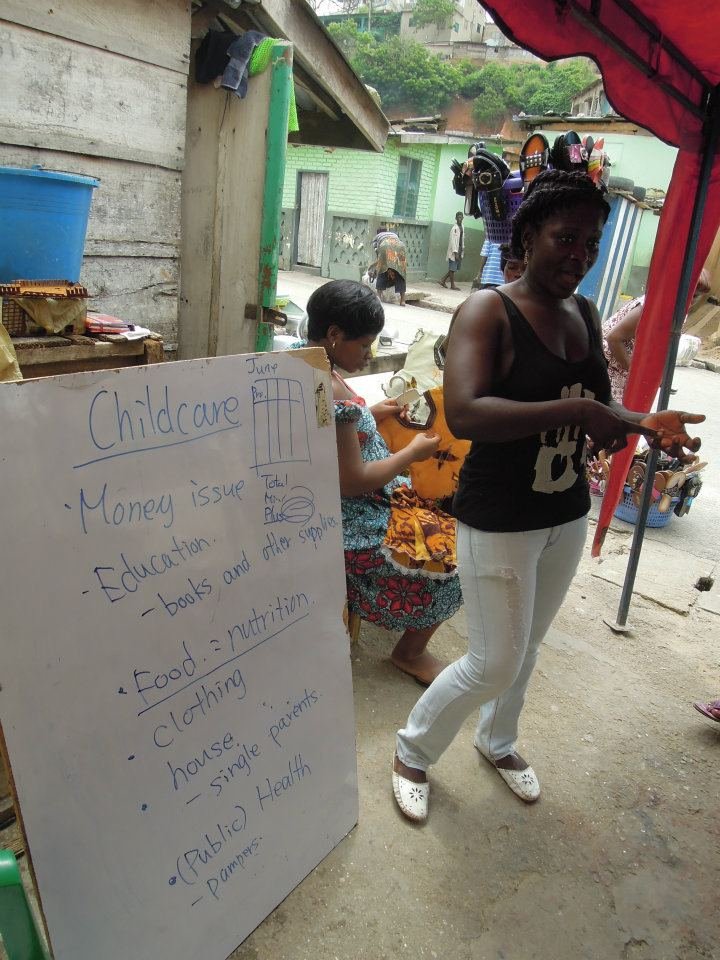 June
Childcare
· Money issue
Total
Plus
- Education.
- books and other supplies.
· Food. = nutrition.
· clothing
· house.
- single parents.
· (Public) Health
- pampers.